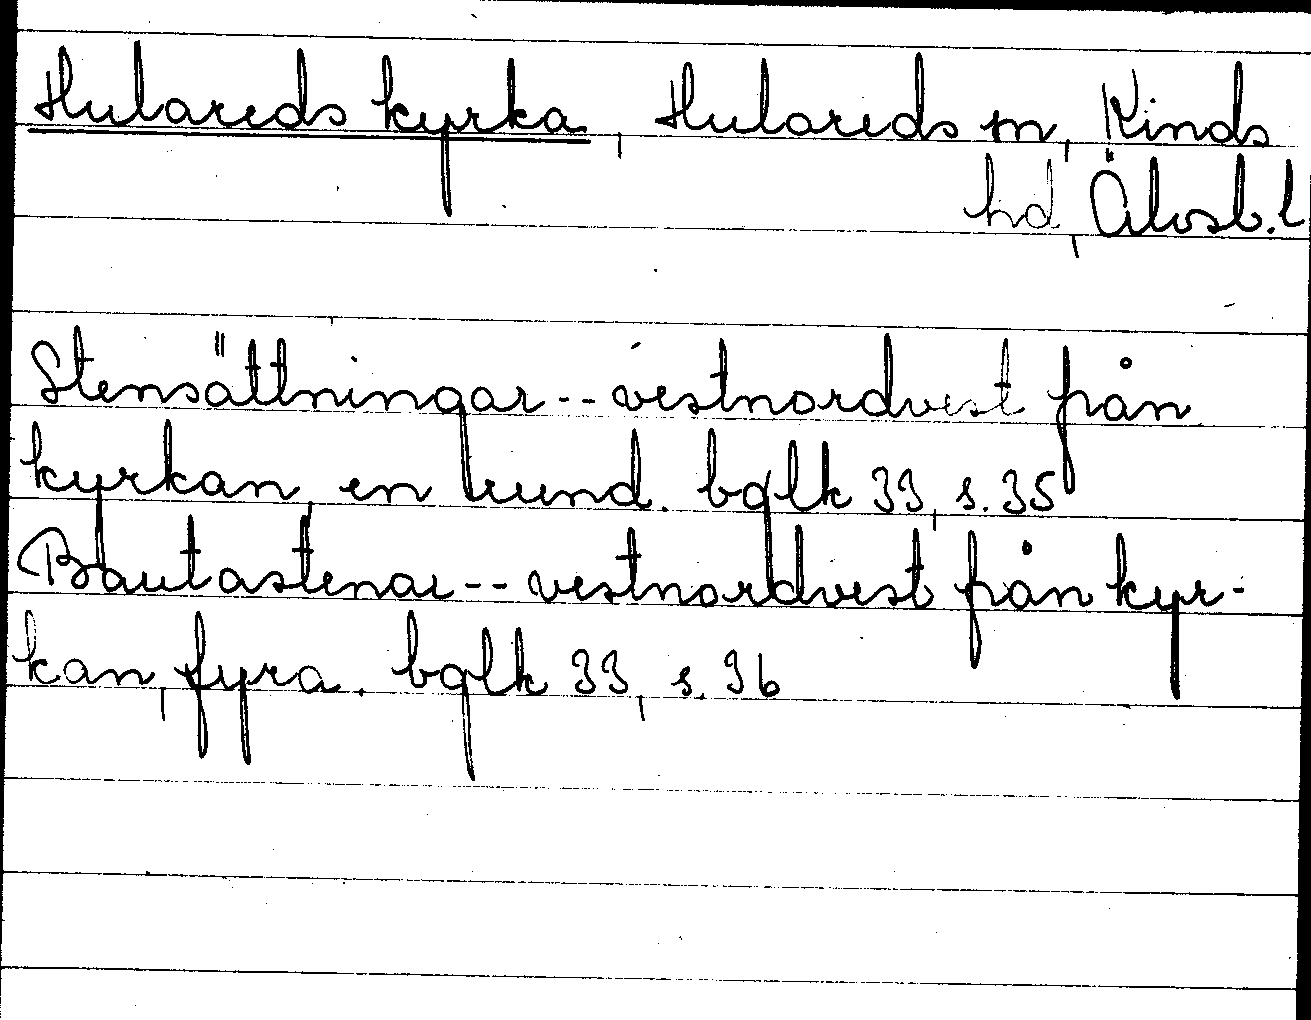 Hulareds kyrka, Hulareds sn, Kinds
hd, Älvsb. l
Stensättningar -- vestnordvest från
kyrkan, en rund. bqlk 33, s. 35
Bautastenar -- vestnordvest från kyr-
kan, fyra. bqlk 33, s. 36